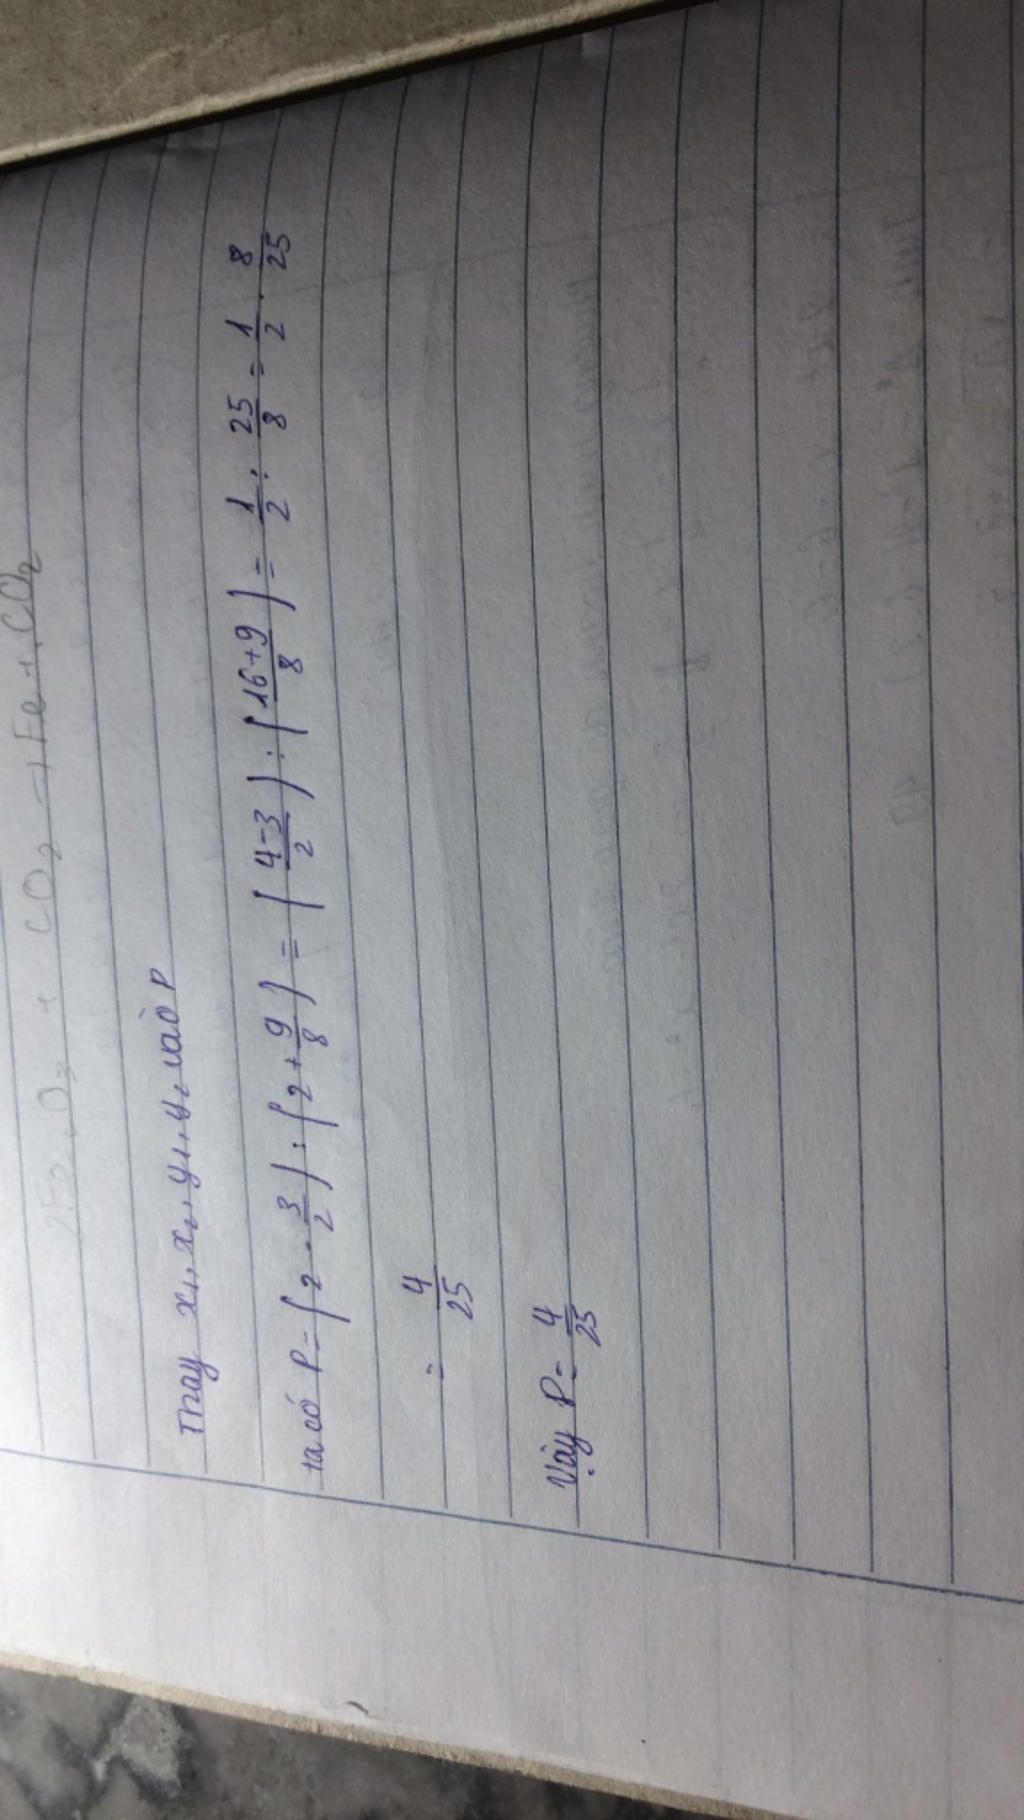 2Fe2O3 + CO2 → Fe + CO2
Thay x1, x2, y1, y2 vào P
ta có P = (2 - 3/2) : (2 + 9/8) = (4-3/2) : (16+9/8) = 1/2 : 25/8 = 1/2 . 8/25
= 4/25
Vậy P = 4/25